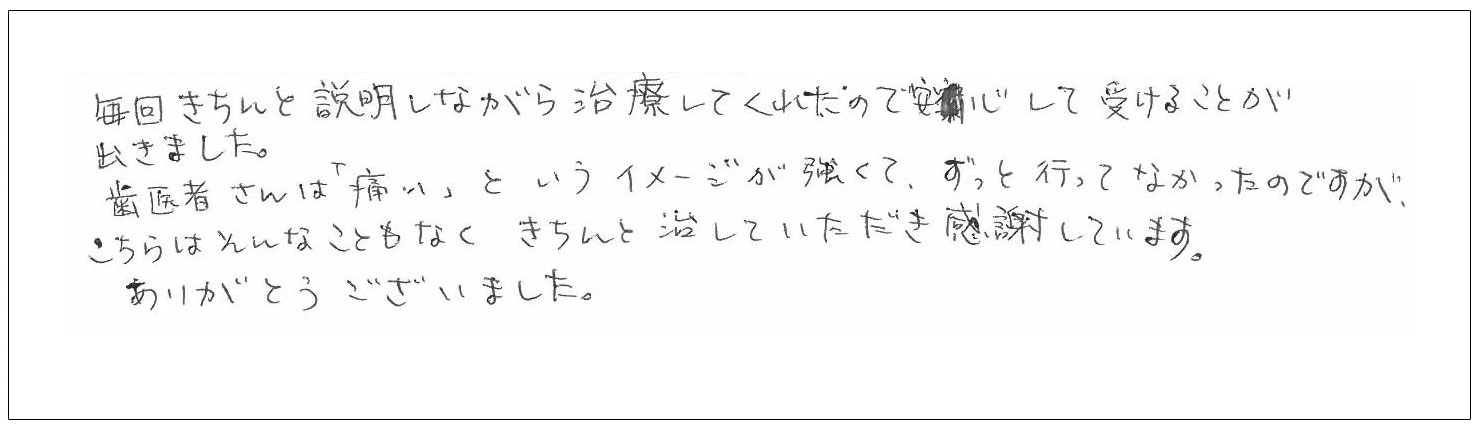 毎回きちんと説明しながら治療してくれたので安心して受けることが
出きました。
歯医者さんは「痛い」というイメージが強くて、ずっと行ってなかったのですが、
こちらはそんなこともなくきちんと治していただき感謝しています。
ありがとうございました。